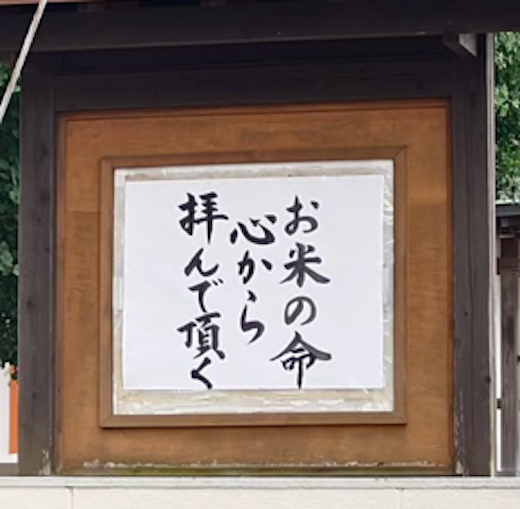 お米の命
心から
拝んで頂く